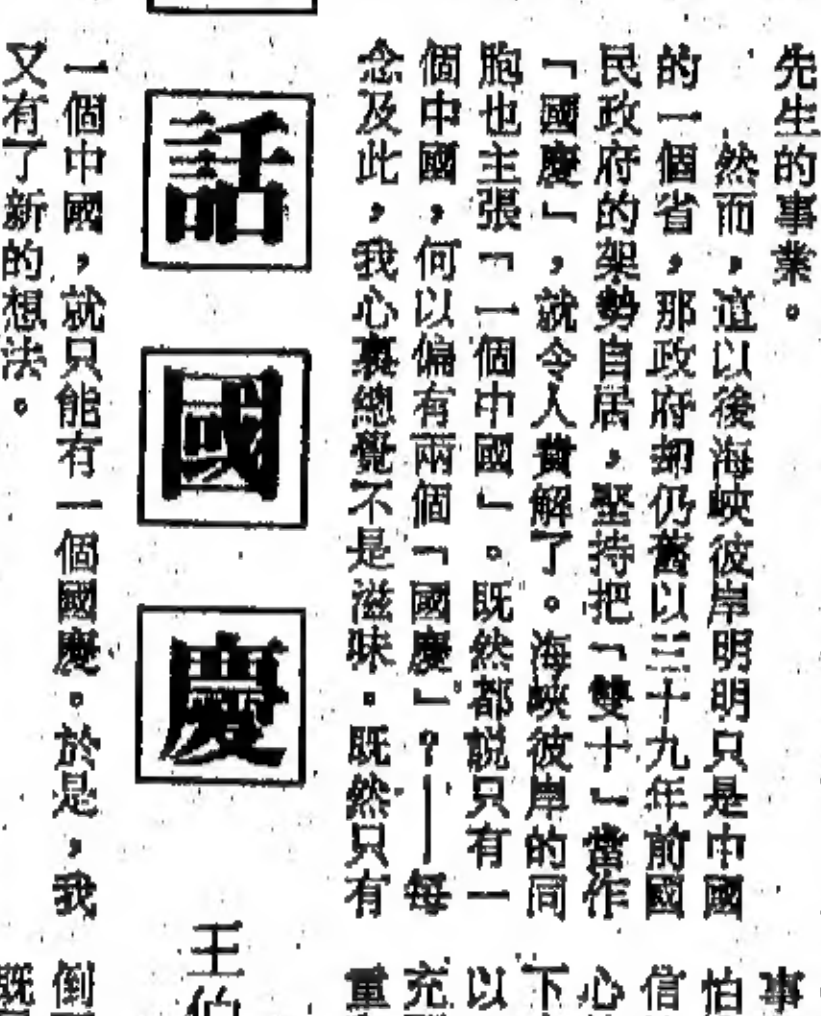 先生的事業。
然而，這以後海峽彼岸明明只是中國
的一個省，那政府卻仍舊以三十九年前國
民政府的架勢自居，堅持把「雙十」當作
「國慶」，就令人費解了。海峽彼岸的同
胞也主張「一個中國」。既然都說只有一
個中國，何以偏有兩個「國慶」？——每
念及此，我心裏總覺不是滋味。既然只有
話國慶
王伯
一個中國，就只能有一個國慶。於是，我
又有了新的想法。
事
怕
信
心
下
以
充
重
倒
既